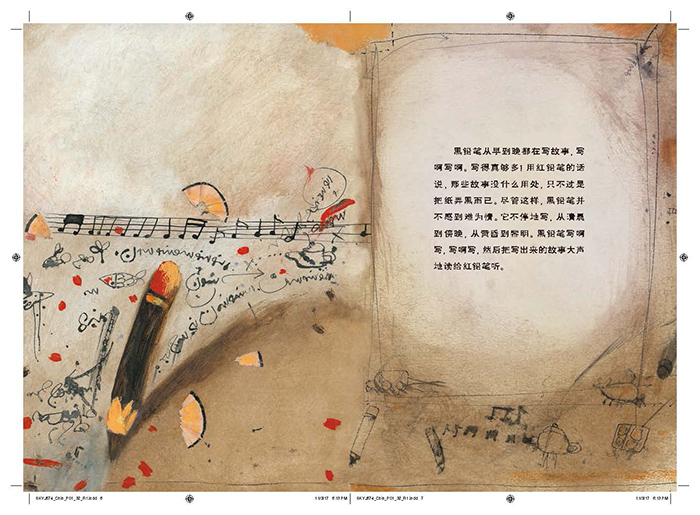 黑铅笔从早到晚都在写故事，写
啊写啊。写得真够多！用红铅笔的话
说，那些故事没什么用处，只不过是
把纸弄黑而已。尽管这样，黑铅笔并
不感到难为情。它不停地写，从清晨
到傍晚，从黄昏到黎明。黑铅笔写啊
写，写啊写，然后把写出来的故事大声
地读给红铅笔听。